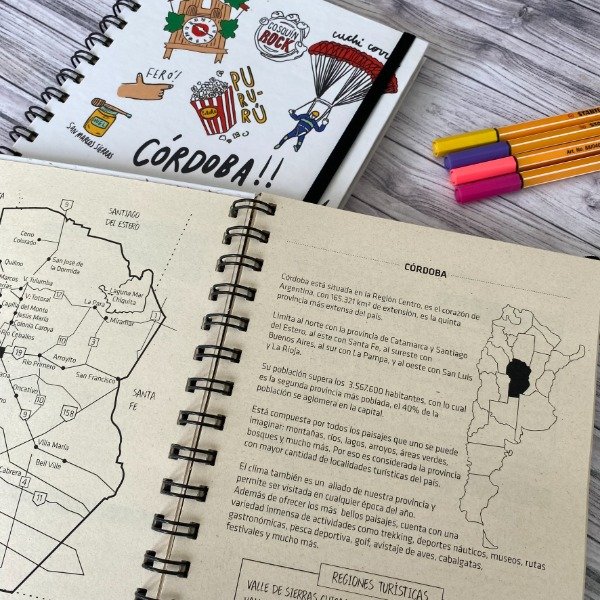 COSQUÍN
ROCK
cuchi corr
FERÓ!
PU
RU-
RÚ
SAN MARCOS SIERRAS
CÓRDOBA!!
STABILO
5
SANTIAGO
DEL ESTERO
Cerro
Colorado
San José de
la Dormida
Quilino
V. Tulumba
Laguna Mar
Chiquita
V. Totoral
La Para
Capilla del Monte
Miramar
Jesús María
Colonia Caroya
Río Ceballos
10
13
17
19
Río Primero
Arroyito
San Francisco
1
SANTA
FE
Oncativo
13
158
9
10
Villa María
Bell Ville
Cabrera
4
11
CÓRDOBA
Córdoba está situada en la Región Centro, es el corazón de
Argentina, con 165.321 km² de extensión, es la quinta
provincia más extensa del país.
Limita al norte con la provincia de Catamarca y Santiago
del Estero, al este con Santa Fe, al sureste con
Buenos Aires, al sur con La Pampa, y al oeste con San Luis
y La Rioja.
Su población supera los 3.567.600 habitantes, con lo cual
es la segunda provincia más poblada, el 40% de la
población se aglomera en la capital.
Está compuesta por todos los paisajes que uno se puede
imaginar: montañas, ríos, lagos, arroyos, áreas verdes,
bosques y mucho más. Por eso es considerada la provincia
con mayor cantidad de localidades turísticas del país.
El clima también es un aliado de nuestra provincia y
permite ser visitada en cualquier época del año.
Además de ofrecer los más bellos paisajes, cuenta con una
variedad inmensa de actividades como trekking, deportes náuticos, museos, rutas
gastronómicas, pesca deportiva, golf, avistaje de aves, cabalgatas,
festivales y mucho más.
REGIONES TURÍSTICAS